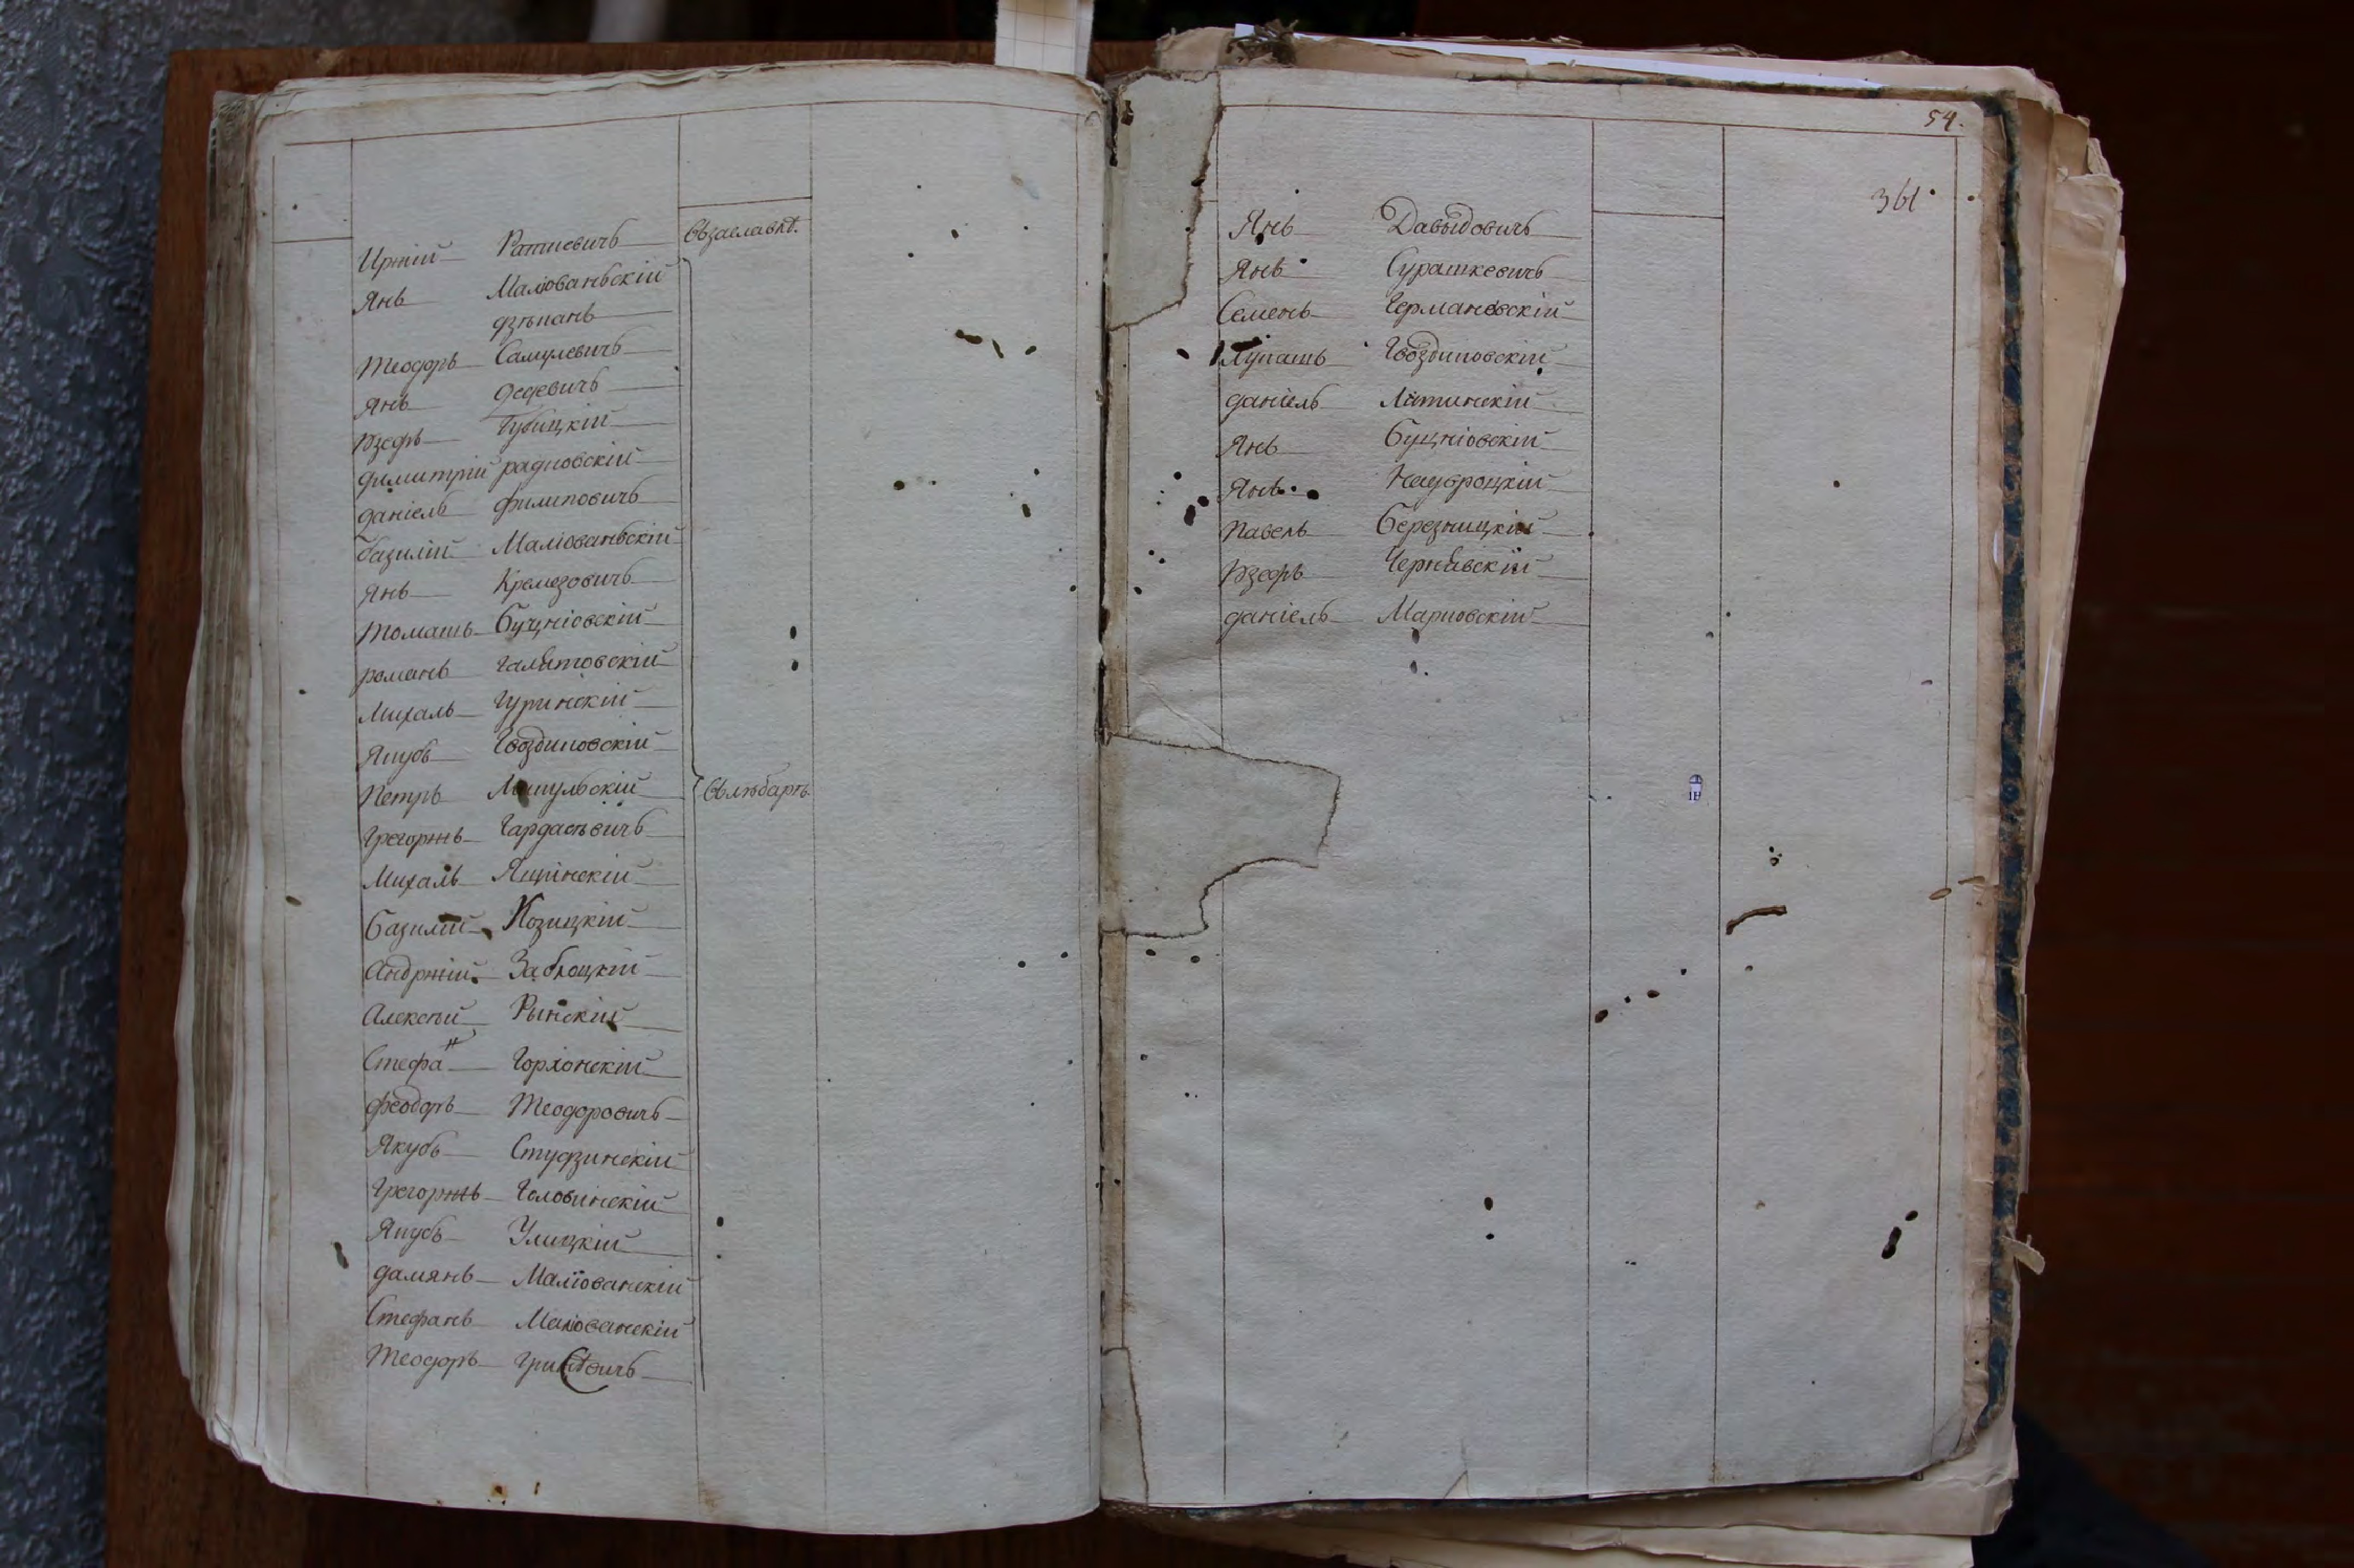 Ирній Ратневичъ Въ Заславлѣ.
Янъ Малюваньскій
дзѣканъ
Теодоръ Самулевичъ
Янъ
Юзефъ Губицкій
Димитрій радновскій
Даніель Филиповичъ
Базилій Маліованьскій
Янъ Кремезовичъ
Томашъ Буцніовскій
романъ Галятовскій
Михаль Гуринскій
Якубъ Гвоздиковскій
Петръ
Грегоржъ Гардасѣвичъ
Михаль
Базилій Козицкій
Андржій Заблоцкій
Алексѣй Рынскій
Стефан
Феодоръ Теодоровичъ
Якубъ Студзинскій
Грегоржъ Головинскій
Якубъ Улицкій
Дамянъ Маліованскій
Стефанъ Маліованскій
Теодоръ
54.
361
Янъ Давыдовичъ
Янъ Сурашкевичъ
Семенъ Германовскій
Лукашъ Гвоздиковскій
Даніель Лятинскій
Янъ Буцніовскій
Янъ
Павелъ Березницкій
Юзефъ Чернявскій
Даніель Марковскій